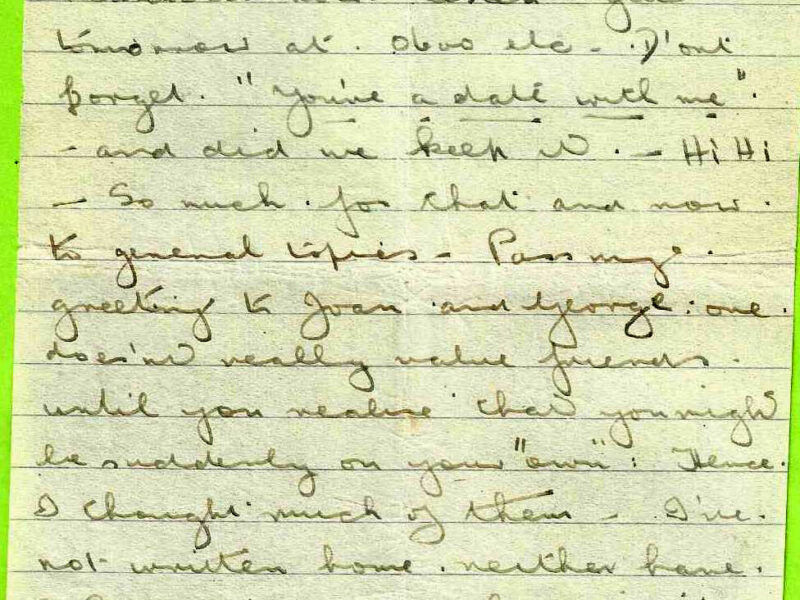 tomorrow at. 0600 etc - D'ont
forget. "You've a date with me".
- and did we keep it. - Hi Hi
- So much. for that and now.
to general topics - Pass my.
greeting to Joan and George: one.
does'nt really value friends.
until you realise that you might
be suddenly on your "own": Hence.
I thought much of them - I've.
not written home. neither have.